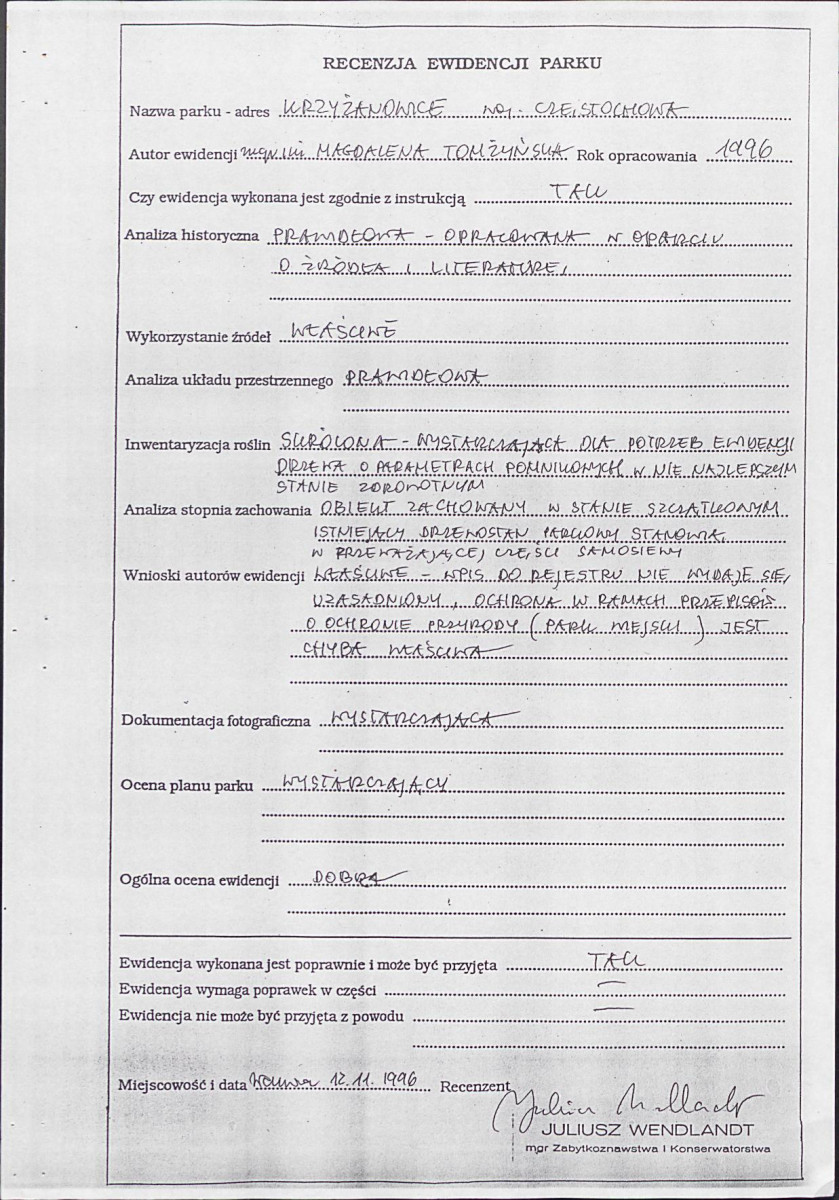 RECENZJA EWIDENCJI PARKU
Nazwa parku - adres KRZYŻANOWICE woj. CZĘSTOCHOWA
Autor ewidencji mgr inż MAGDALENA TOMŻYŃSKA Rok opracowania 1996
Czy ewidencja wykonana jest zgodnie z instrukcją TAK
Analiza historyczna PRAWIDŁOWA - OPRACOWANA W OPARCIU
O ŹRÓDŁA I LITERATURĘ
Wykorzystanie źródeł WŁAŚCIWE
Analiza układu przestrzennego PRAWIDŁOWA
Inwentaryzacja roślin SKRÓCONA - WYSTARCZAJĄCA DLA POTRZEB EWIDENCJI
DRZEWA O PARAMETRACH POMNIKOWYCH W NIE NAJLEPSZYM
STANIE ZDROWOTNYM
Analiza stopnia zachowania OBIEKT ZACHOWANY W STANIE SZCZĄTKOWYM
ISTNIEJĄCY DRZEWOSTAN PARKOWY STANOWIĄ
W PRZEWAŻAJĄCEJ CZĘŚCI SAMOSIEWY
Wnioski autorów ewidencji WŁAŚCIWE - WPIS DO REJESTRU NIE WYDAJE SIĘ
UZASADNIONY, OCHRONA W RAMACH PRZEPISÓW
O OCHRONIE PRZYRODY (PARK WIEJSKI) JEST
CHYBA WŁAŚCIWA
Dokumentacja fotograficzna WYSTARCZAJĄCA
Ocena planu parku WYSTARCZAJĄCY
Ogólna ocena ewidencji DOBRA
Ewidencja wykonana jest poprawnie i może być przyjęta TAK
Ewidencja wymaga poprawek w części —
Ewidencja nie może być przyjęta z powodu —
Miejscowość i data 12.11.1996 Recenzent
JULIUSZ WENDLANDT
mgr Zabytkoznawstwa i Konserwatorstwa